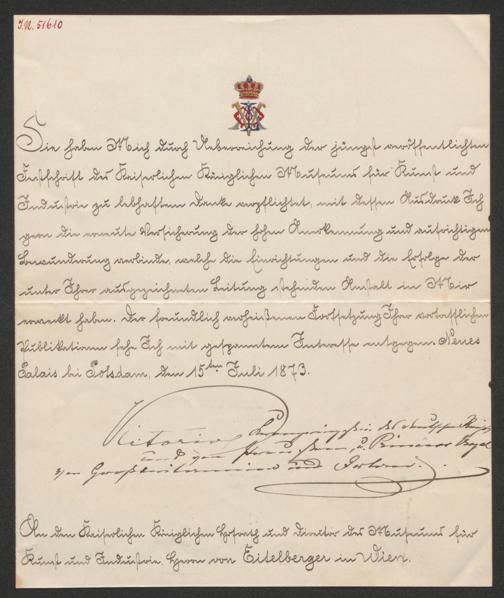 J.N. 51610
Sie haben Mich durch Ueberreichung der jüngst veröffentlichten
Festschrift des Keiserlichen Königlichen Museums für Kunst und
Industrie zu lebhaftem Danke verpflichtet, mit dessen Ausdruck Ich
gern die erneute Versicherung der hohen Anerkennung und aufrichtigen
Bewunderung verbinde, welche die Einrichtungen und die Erfolge der
unter Ihrer ausgezeichneten Leitung stehenden Anstalt in Mir
erweckt haben. Der freundlich verheißenen Fortsetzung Ihrer vortrefflichen
Publikationen sehe Ich mit gespanntem Interesse entgegen. Neues
Palais bei Potsdam, den 15ten Juli 1873.
Victoria Kronprinzessin des deutschen Reichs
und von Preussen, u. Princess Royal
von Großbritannien und Irland.
An den Keiserlichen Königlichen Hofrath und Director des Museums für
Kunst und Industrie Herrn von Eitelberger in Wien.